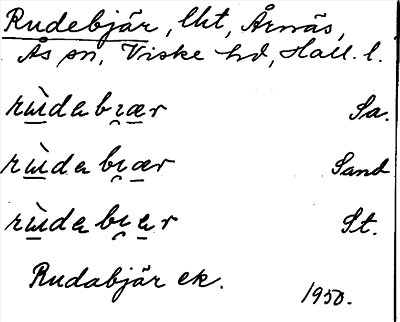 Rudebjär, lht, Årnäs,
Ås sn, Viske hd, Hall. l.
rùdabɪær Sa.
rùdabɪær Sand
rùdabɪar St.
Rudabjär ek.
1950.